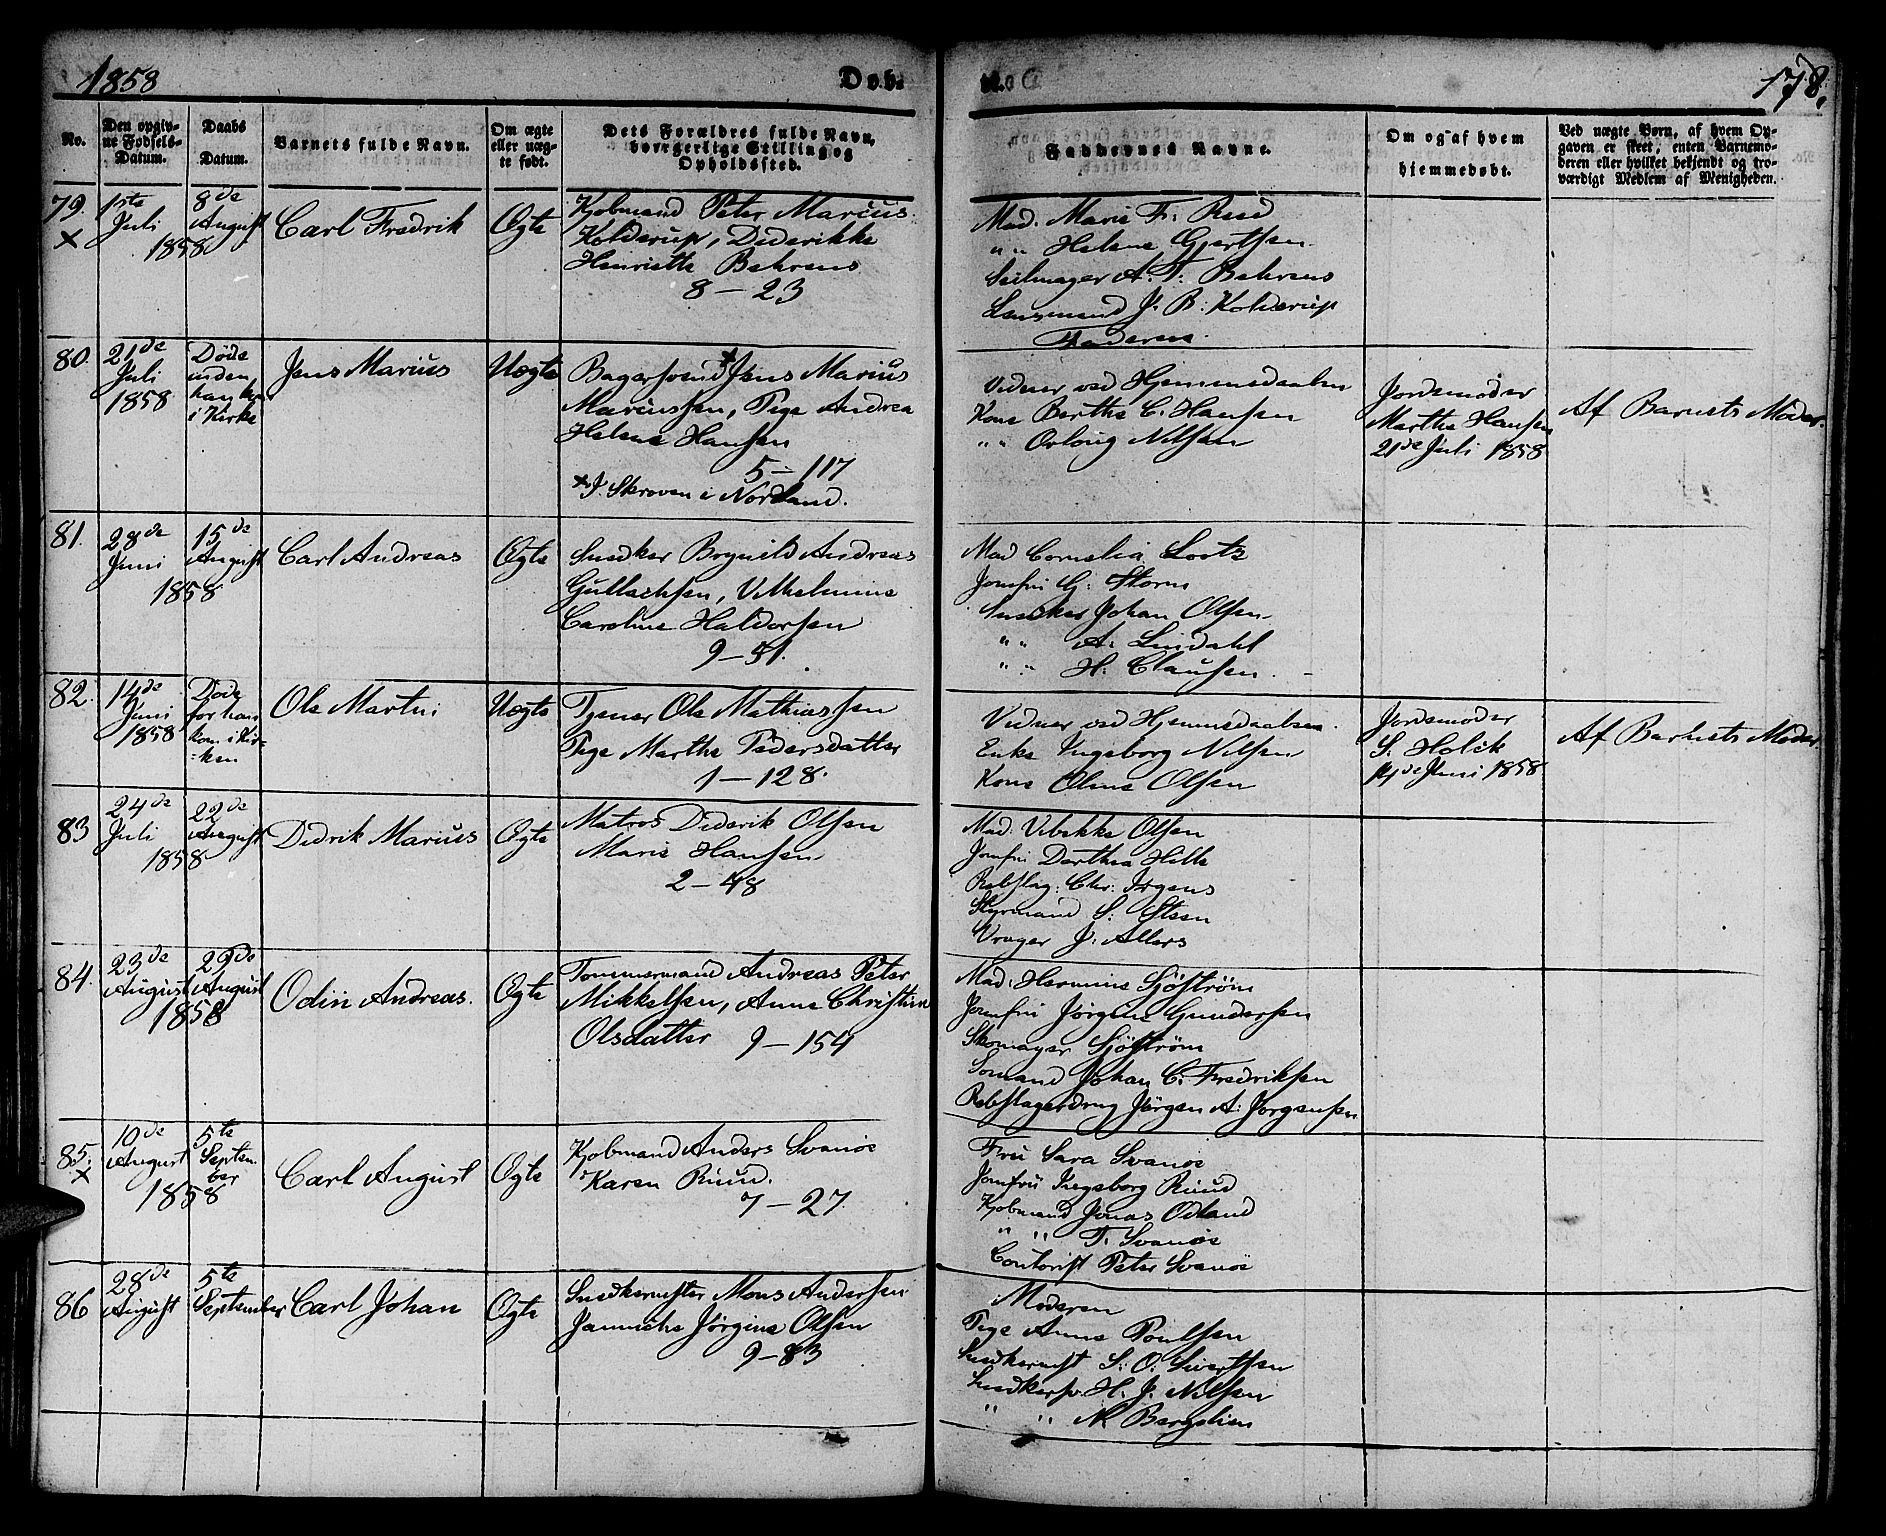 1858
Døbte.
178.
No.
Den opgiv-
ne Fødsels-
Datum.
Daabs
Datum.
Barnets fulde Navn.
Om ægte
eller uæg-
te født.
Dets Forældres fulde Navn,
borgerlige Stilling og
Opholdssted.
Faddernes Navne.
Om og af hvem
hjemmedøbt.
Ved uægte Børn, af hvem Op-
gaven er skeet, enten Barnemo-
deren eller hvilket bekjendt og tro-
værdigt Medlem af Menigheden.
79.
×
1ste
Juli
1858
8de
August
Carl Fredrik
Ægte
Kjøbmand Peter Marius
Kolderup, Dederikke
Henriette Behrens
8 – 23
Mad. Marie F: Reed
" " Helene Gjertsen
Seilmager A. T. Behrens
Lensmand J. B: Kolderup
Faderen.
80.
21de
Juli
1858
Døde
inden
han kom
i Kirke
Jens Marius
Uægte
Bagersvend × Jens Marius
Mariussen, Pige Andrea
Helene Hansen
5 – 117
× J. Skroven i Nordland.
Vidner ved Hjemmedaaben
Kone Berthe C. Hansen
" " Orloug Nilsen
Jordemoder
Marthe Hansen
21de Juli 1858
Af Barnets Moder.
81.
28de
Juni
1858
15de
August
Carl Andreas
Ægte
Snedker Brynild Andreas
Gullachsen, Vilhelmine
Caroline Haldorsen
9 – 51.
Mad Cornelia Lootz
Jomfru G: Storm
Snedker Johan Olsen
" " A: Lindahl
" " H: Clausen.
82.
14de
Juni
1858
Døde
før han
kom i Kir-
ken
Ole Martin
Uægte
Tjener Ole Mathiassen
Pige Marthe Pedersdatter
1 – 128.
Vidner ved Hjemmedaaben
Enke Ingeborg Nilsen
Kone Oline Olsen
Jordemoder
S: Holck
14de Juni 1858
Af Barnets Moder
83
24de
Juli
1858
22de
August
Didrik Marius
Ægte
Matros Diderik Olsen
Marie Hansen
2 – 48
Mad. Vibekke Olsen
Jomfru Dorthea Hille
Rebslag: Chr: Irgens
Styrmand S: Steen
Vrager J. Allers
84.
23de
August
1858
29de
August
Odin Andreas.
Ægte
Tømmermand Andreas Peter
Mikkelsen, Anne Christine
Olsdatter 9 – 154
Mad. Hermine Sjøstrøm
Jomfru Jørgine Gundersen
Skomager Sjøstrøm
Sømand Johan C. Fredriksen
Rebslagerdrng Jørgen A: Jørgensen
85.
×
10de
August
1858
5te
Septem-
ber
Carl August
Ægte
Kjøbmand Anders Svanøe
Karen Ruud.
7 – 27.
Fru Sara Svanøe
Jomfru Ingeborg Ruud
Kjøbmand Jonas Odland
" " T. Svanøe
Contorist Peter Svanøe
86
28de
August
5te
September
Carl Johan
Ægte
Snedkermster Mons Andersen
Jannicke Jørgine Olsen
9 – 83
Moderen
Pige Anne Poulsen
Snedkermst S: O: Sivertsen
Snedkersv. H. J. Nilsen
" " N. Bergelien